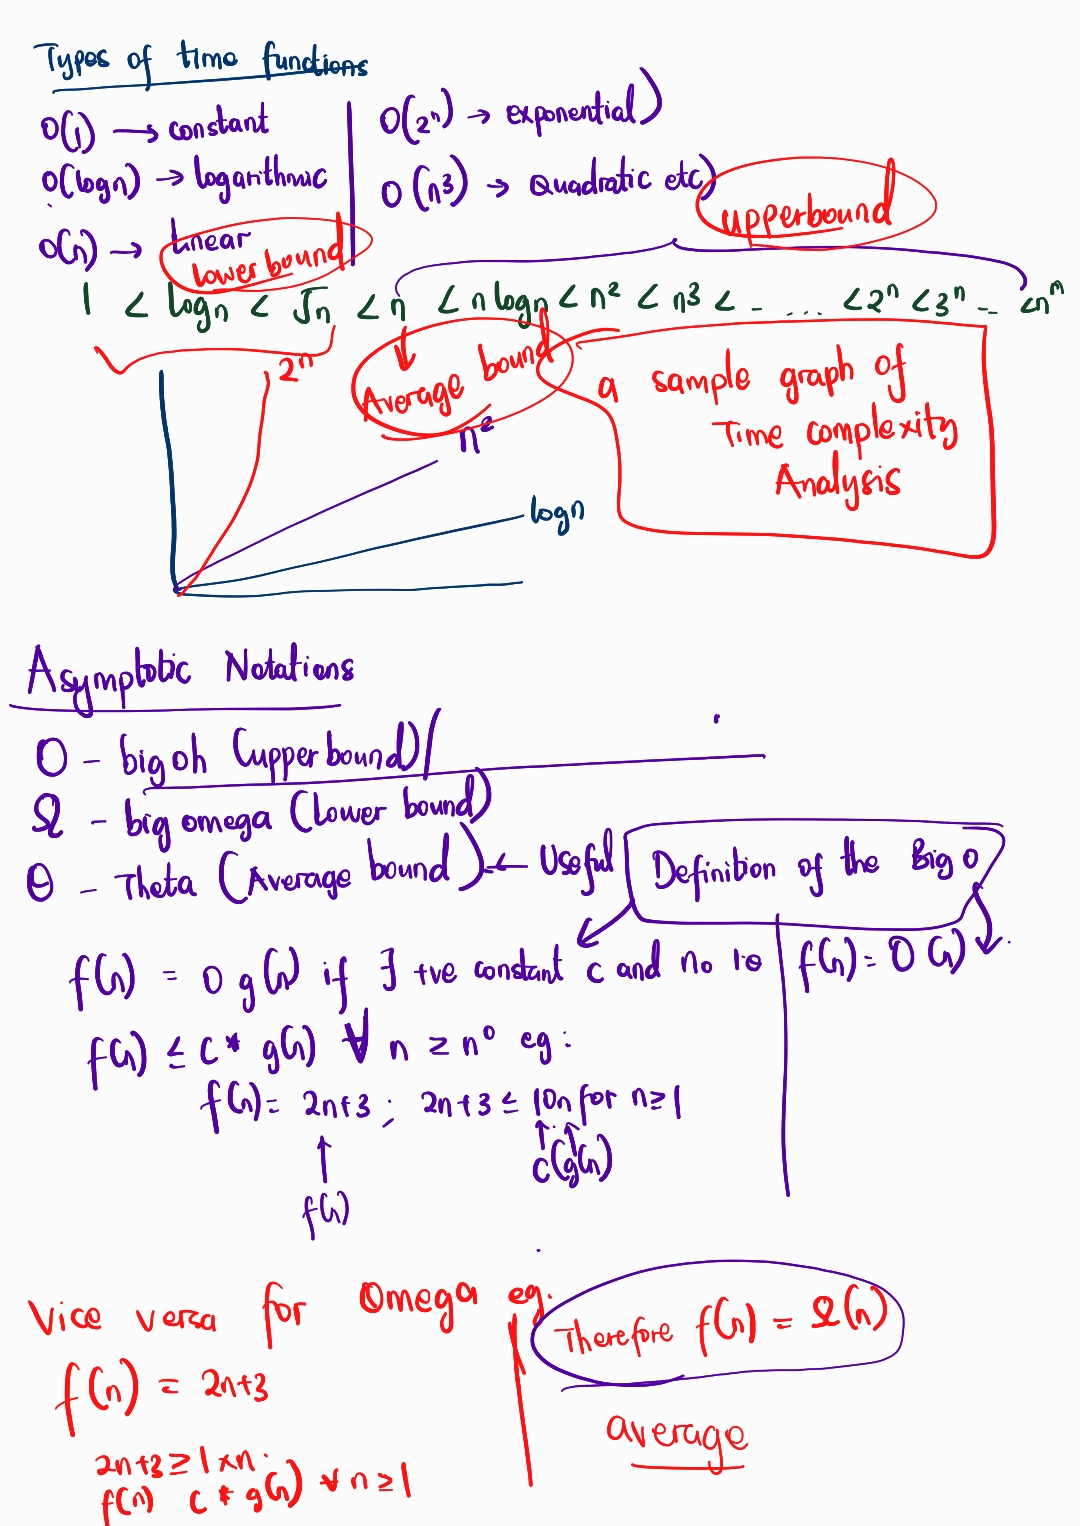 Types of time functions
O(1) → constant
O(logn) → logarithmic
O(n) → linear
O(2ⁿ) → exponential)
O(n³) → Quadratic etc)
upperbound
lower bound
1 < logn < √n < n < n logn < n² < n³ < - ... < 2ⁿ < 3ⁿ - - < nⁿ
Average bound
2ⁿ
n²
logn
a sample graph of
Time complexity
Analysis
Asymptotic Notations
O - big oh (upper bound)/
Ω - big omega (lower bound)
Θ - Theta (Average bound) ← Useful
Definition of the Big O
f(n) = O g(n) if ∃ +ve constant c and no to
f(n) = O(n)
f(n) ≤ c * g(n) ∀ n ≥ n⁰ eg:
f(n) = 2n+3 ; 2n+3 ≤ 10n for n ≥ 1
↑ ↑ ↑
c(g(n)
f(n)
Vice versa for Omega eg.
f(n) = 2n+3
2n+3 ≥ 1 × n
f(n) c * g(n) ∀ n ≥ 1
Therefore f(n) = Ω(n)
average